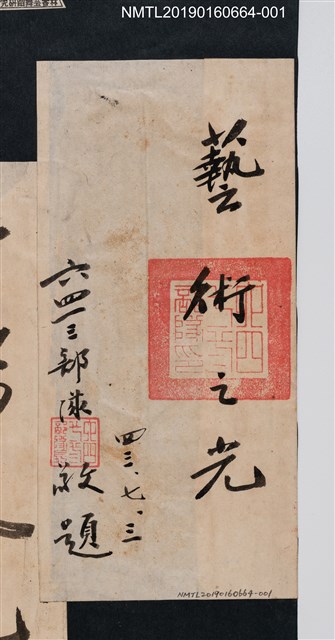 NMTL20190160664-001
藝術之光
四三、七、三
六四一三部隊敬題
NMTL20190160664-001